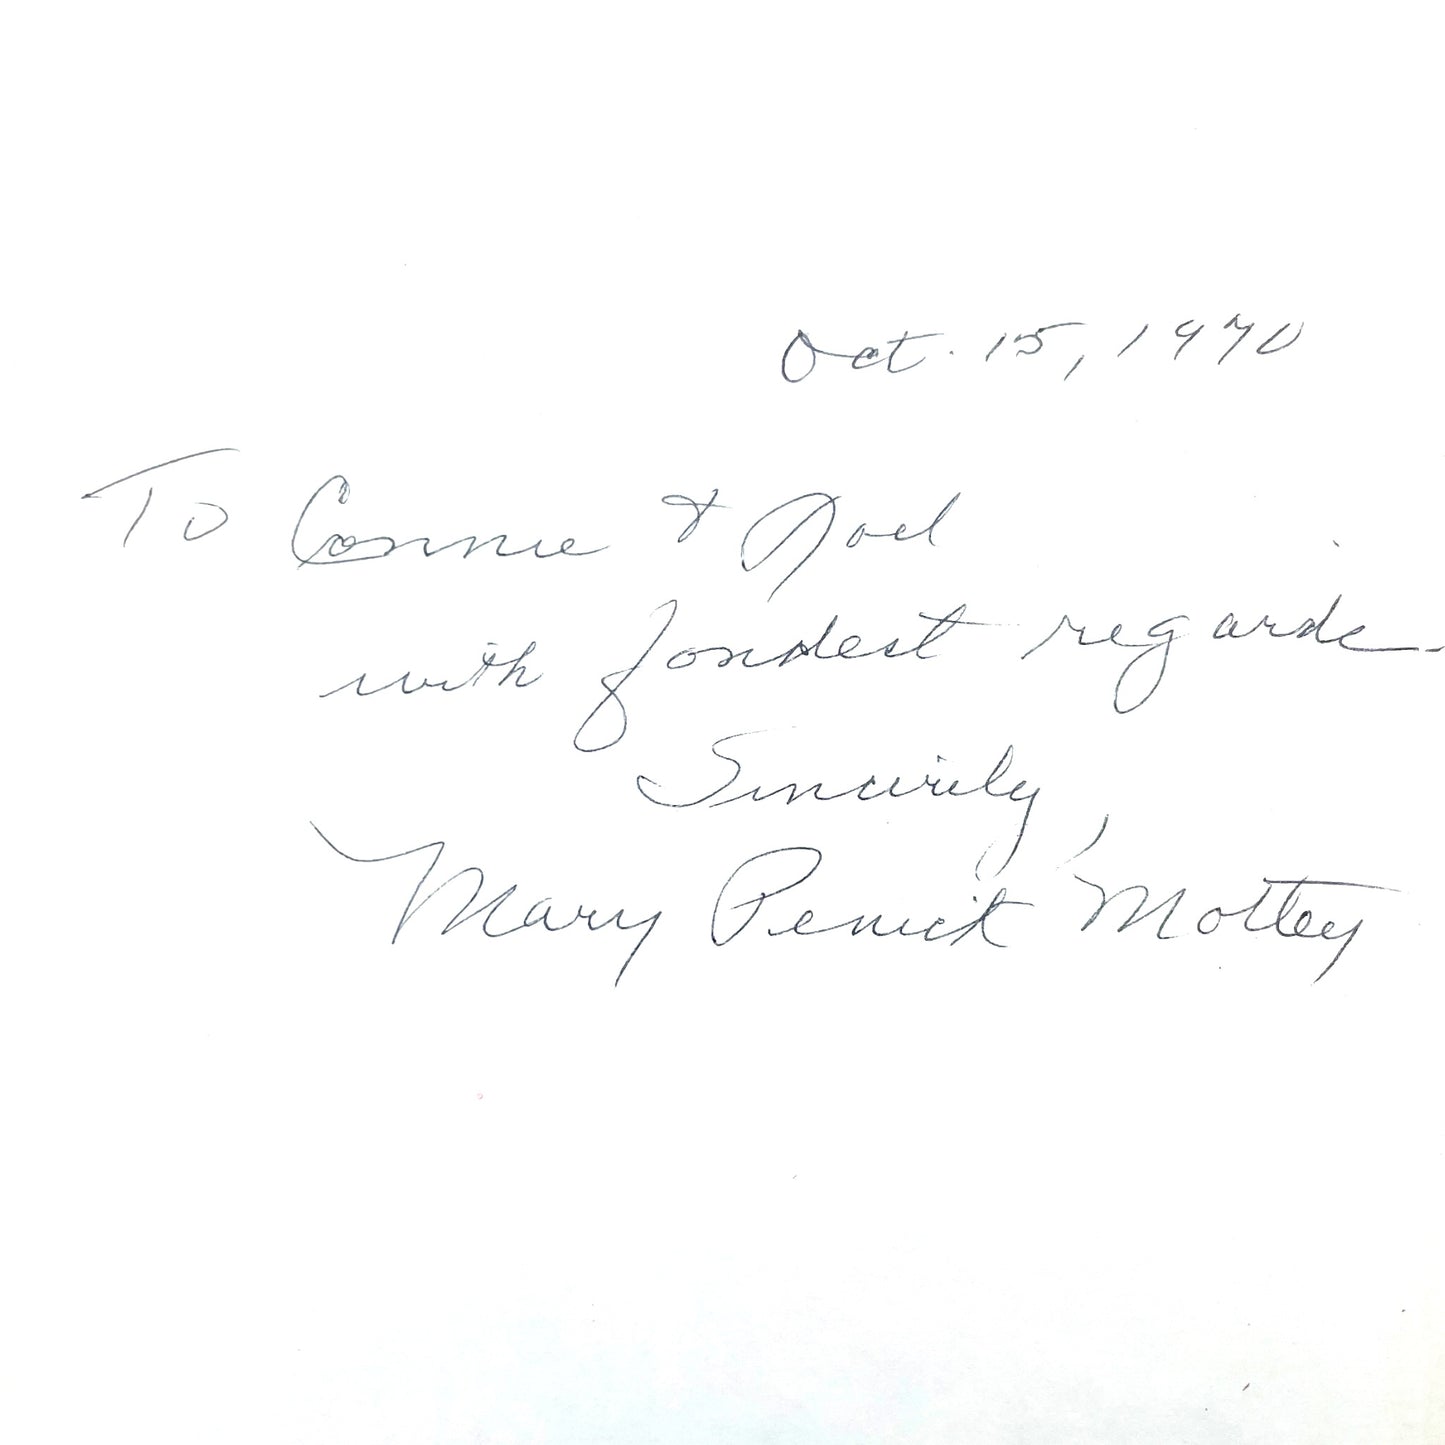 Oct. 15, 1970
To Connie & Noel
with fondest regards
Sincerely,
Mary Penick Motley